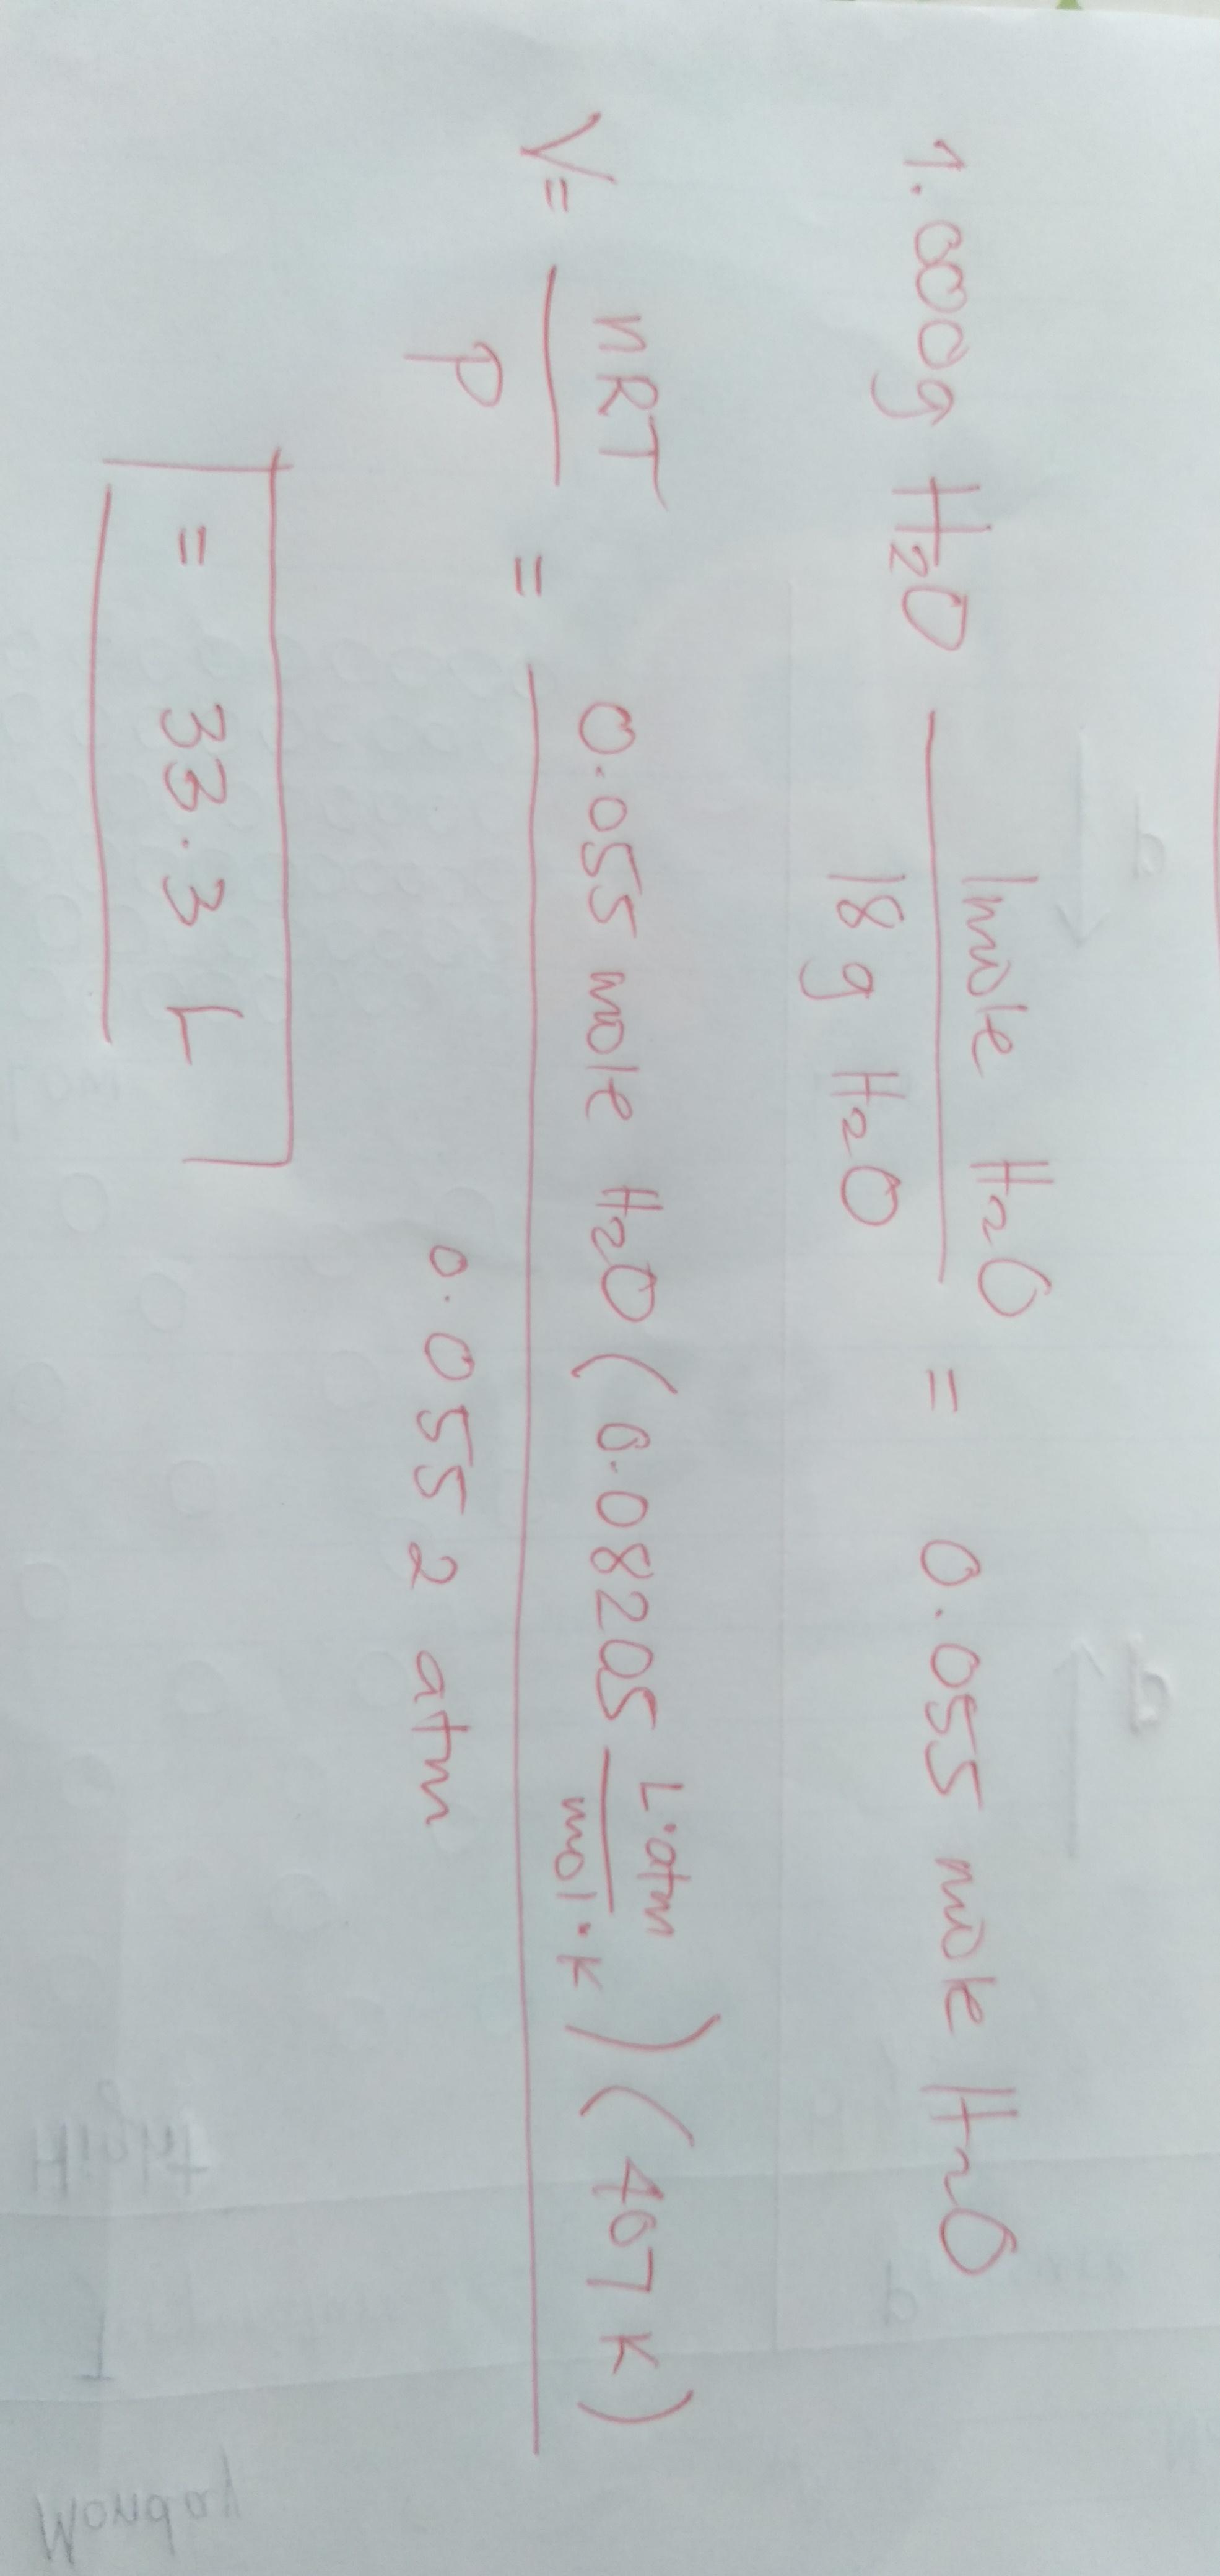 1.000g H₂O 1mole H₂O / 18 g H₂O = 0.055 mole H₂O
V = nRT / P = 0.055 mole H₂O (0.08205 L·atm / mol·K) (407 K) / 0.0552 atm
= 33.3 L